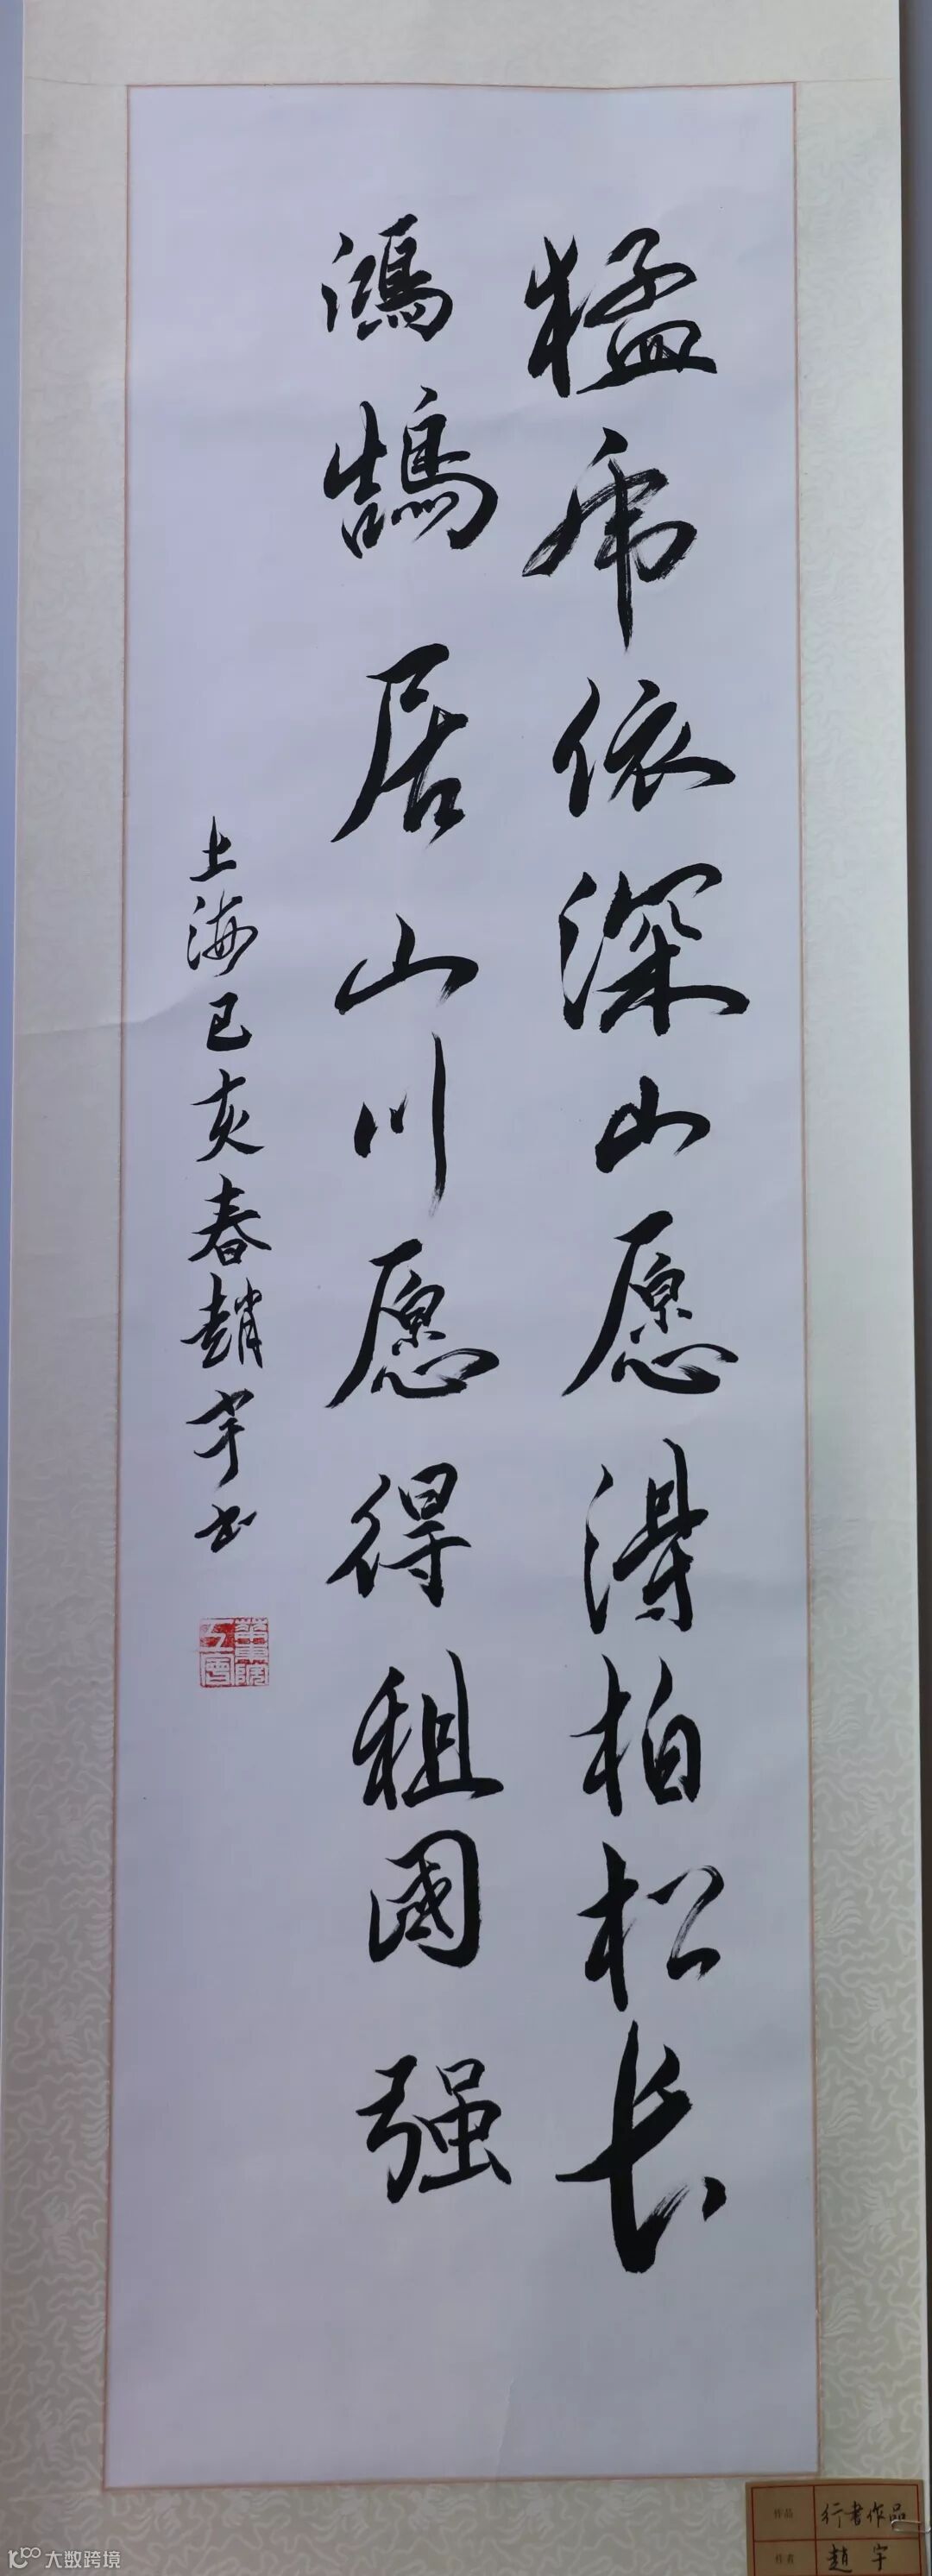 猛虎依深山愿得柏松长
鴻鵠居山川愿得祖國强
上海己亥春趙宇书
華東院
工會
作品 行書作品
作者 趙宇
大数跨境